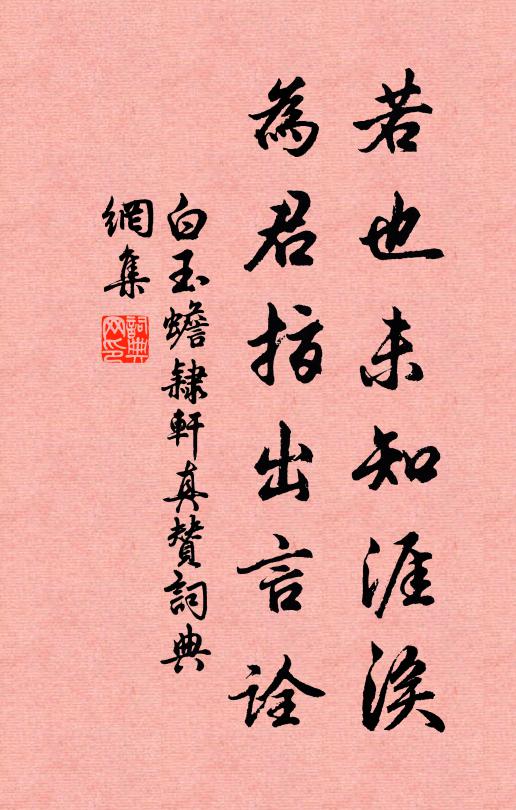 若也未知涯涘
為君指出言詮
白玉蟾隸軒真贊詞典
網集
詞典
网印